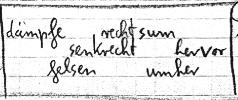 dämpfe rechtsum
senkrecht hervor
felsen umher